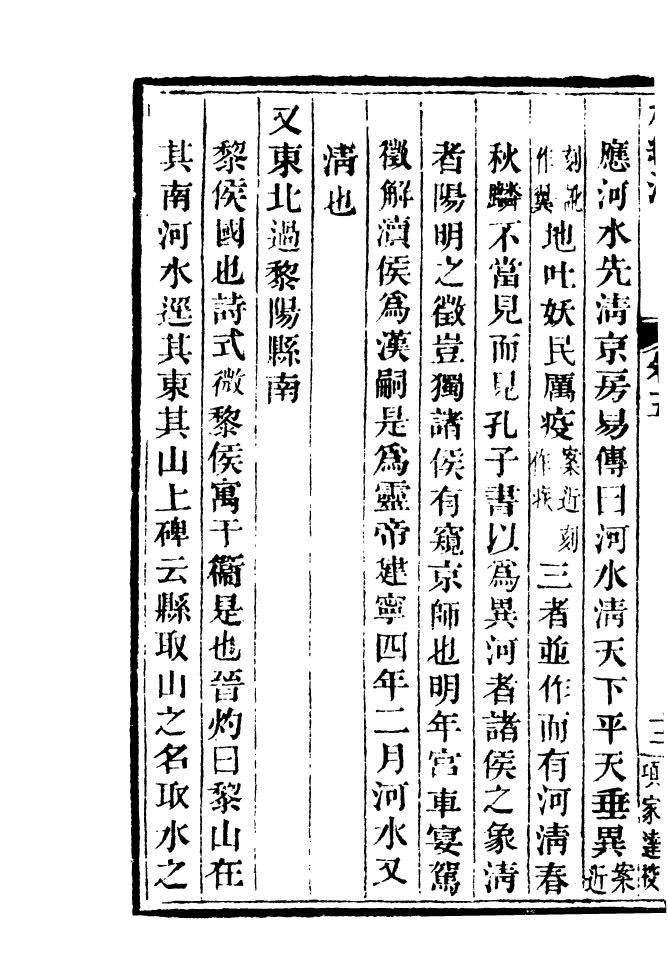 應河水先淸京房易傳曰河水淸天下平天垂異案近
刻訛作異地吐妖民厲疫案近刻作疾三者並作而有河淸春
秋麟不當見而見孔子書以爲異河者諸侯之象淸
者陽明之徵豈獨諸侯有窺京師也明年宮車宴駕
徵解瀆侯爲漢嗣是爲靈帝建寧四年二月河水又
淸也
又東北過黎陽縣南
黎侯國也詩式微黎侯寓于衞是也晉灼曰黎山在
其南河水逕其東其山上碑云縣取山之名取水之
項家達校